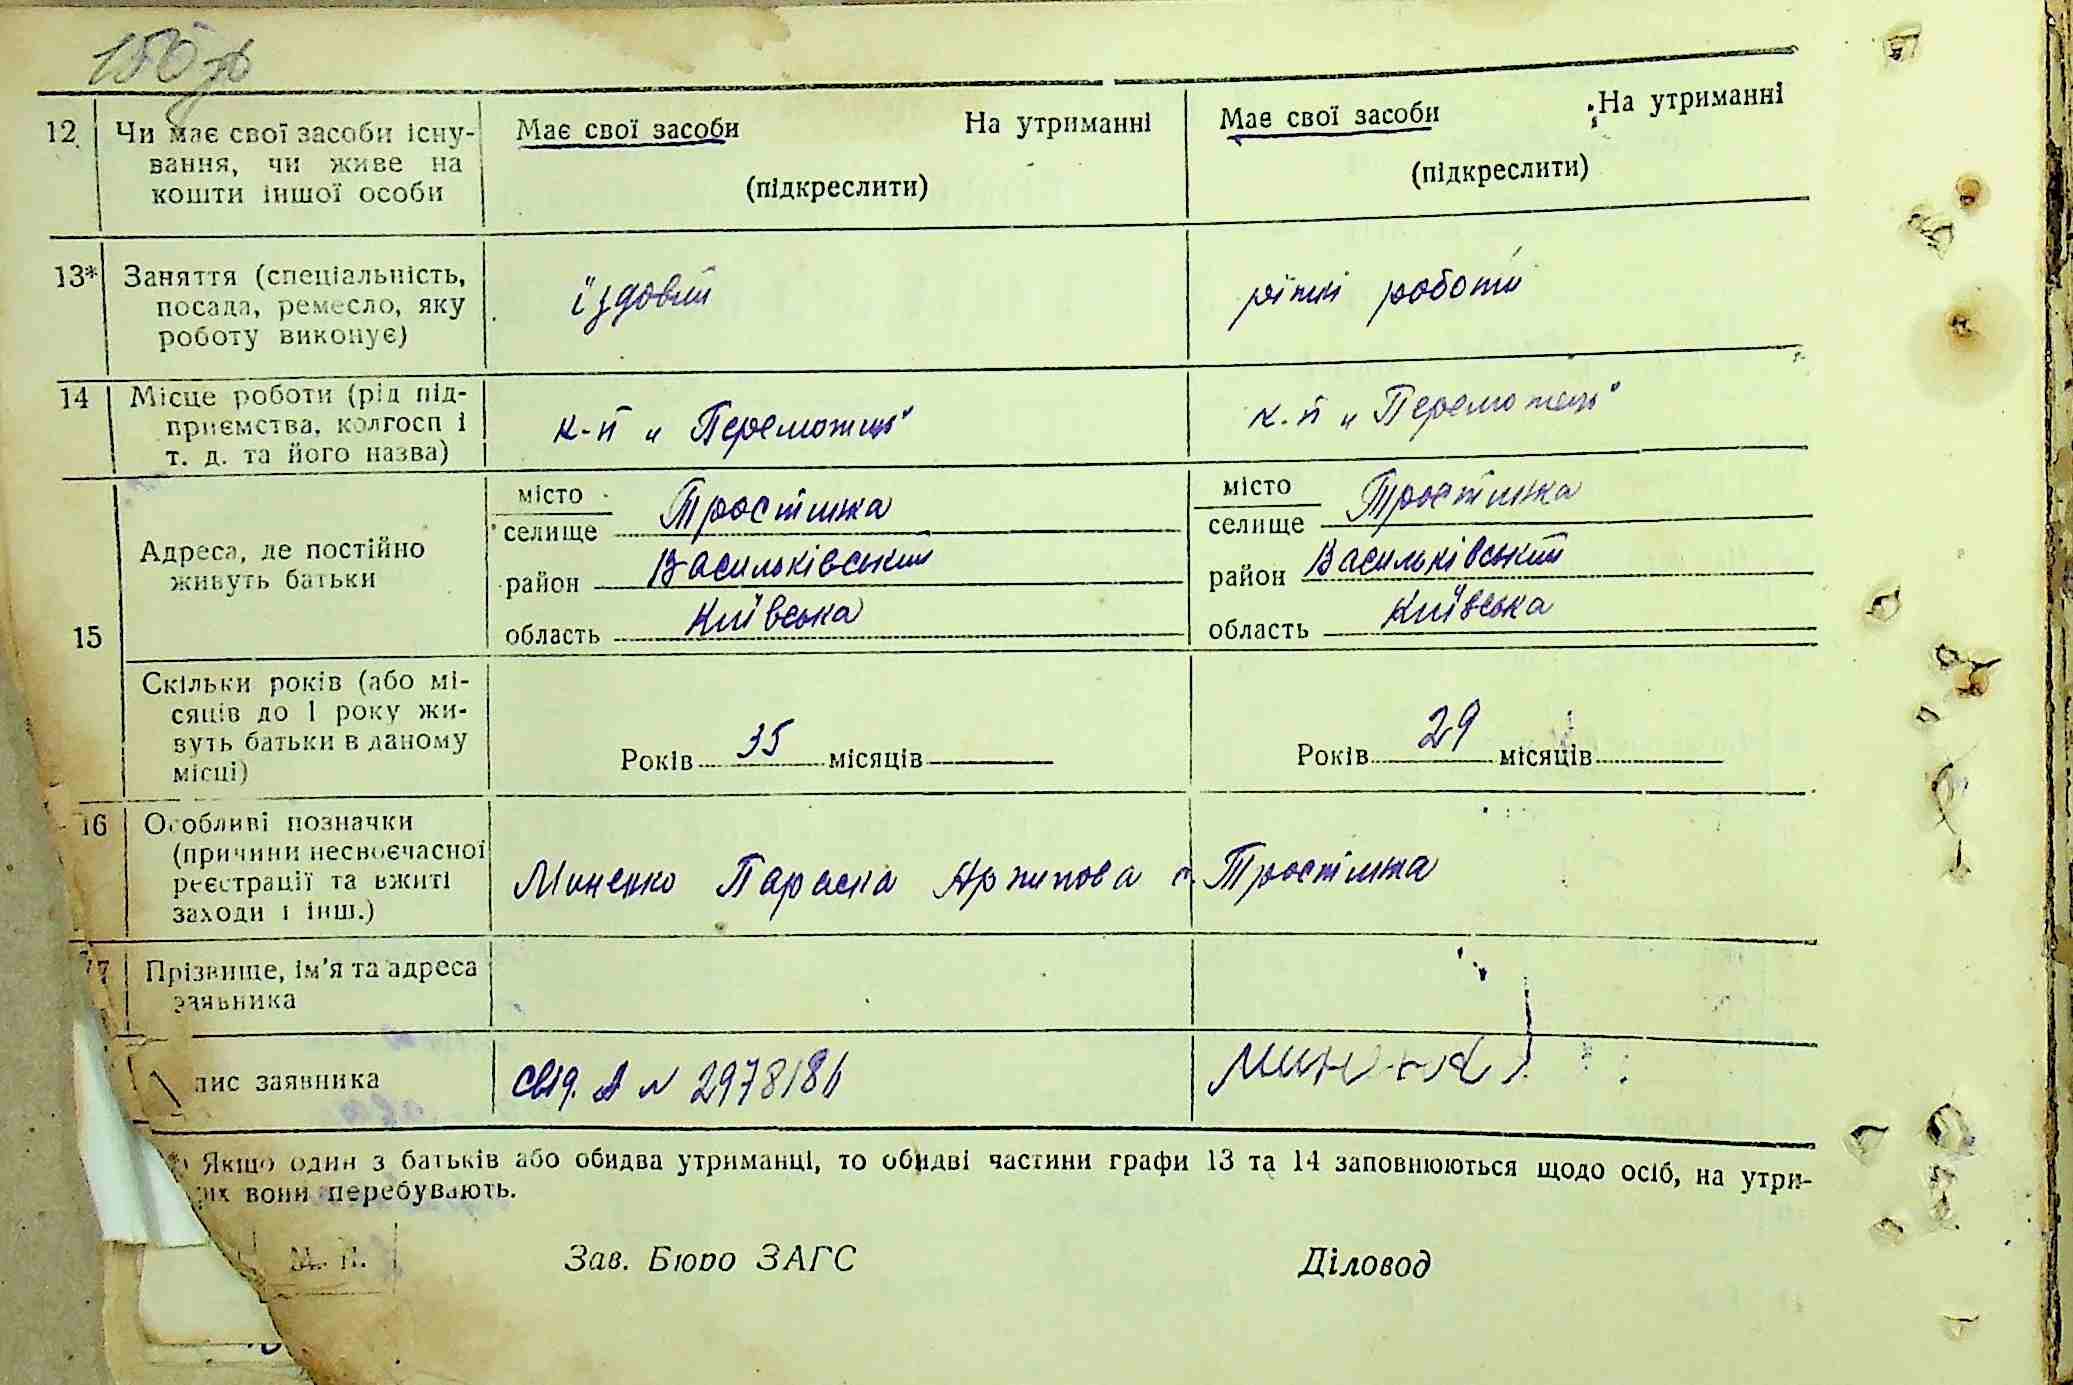 150
12 Чи має свої засоби існу-
вання, чи живе на
кошти іншої особи
Має свої засоби На утриманні
(підкреслити)
Має свої засоби На утриманні
(підкреслити)
13* Заняття (спеціальність,
посада, ремесло, яку
роботу виконує)
їздовий
різні роботи
14 Місце роботи (рід під-
приємства, колгосп і
т. д. та його назва)
к-п „Переможець"
к.п „Переможець"
15
Адреса, де постійно
живуть батьки
місто
селище Тростинка
район Васильківський
область Київська
місто
селище Тростинка
район Васильківський
область Київська
Скільки років (або мі-
сяців до 1 року жи-
вуть батьки в даному
місці)
Років 35 місяців
Років 29 місяців
16 Особливі позначки
(причини несвоєчасної
реєстрації та вжиті
заходи і інш.)
Миненко Параска Архипова с. Тростинка
17 Прізвище, ім'я та адреса
заявника
пис заявника
свід. А № 2978186
*) Якщо один з батьків або обидва утриманці, то обидві частини графи 13 та 14 заповнюються щодо осіб, на утри-
их вони перебувають.
М. П.
Зав. Бюро ЗАГС
Діловод